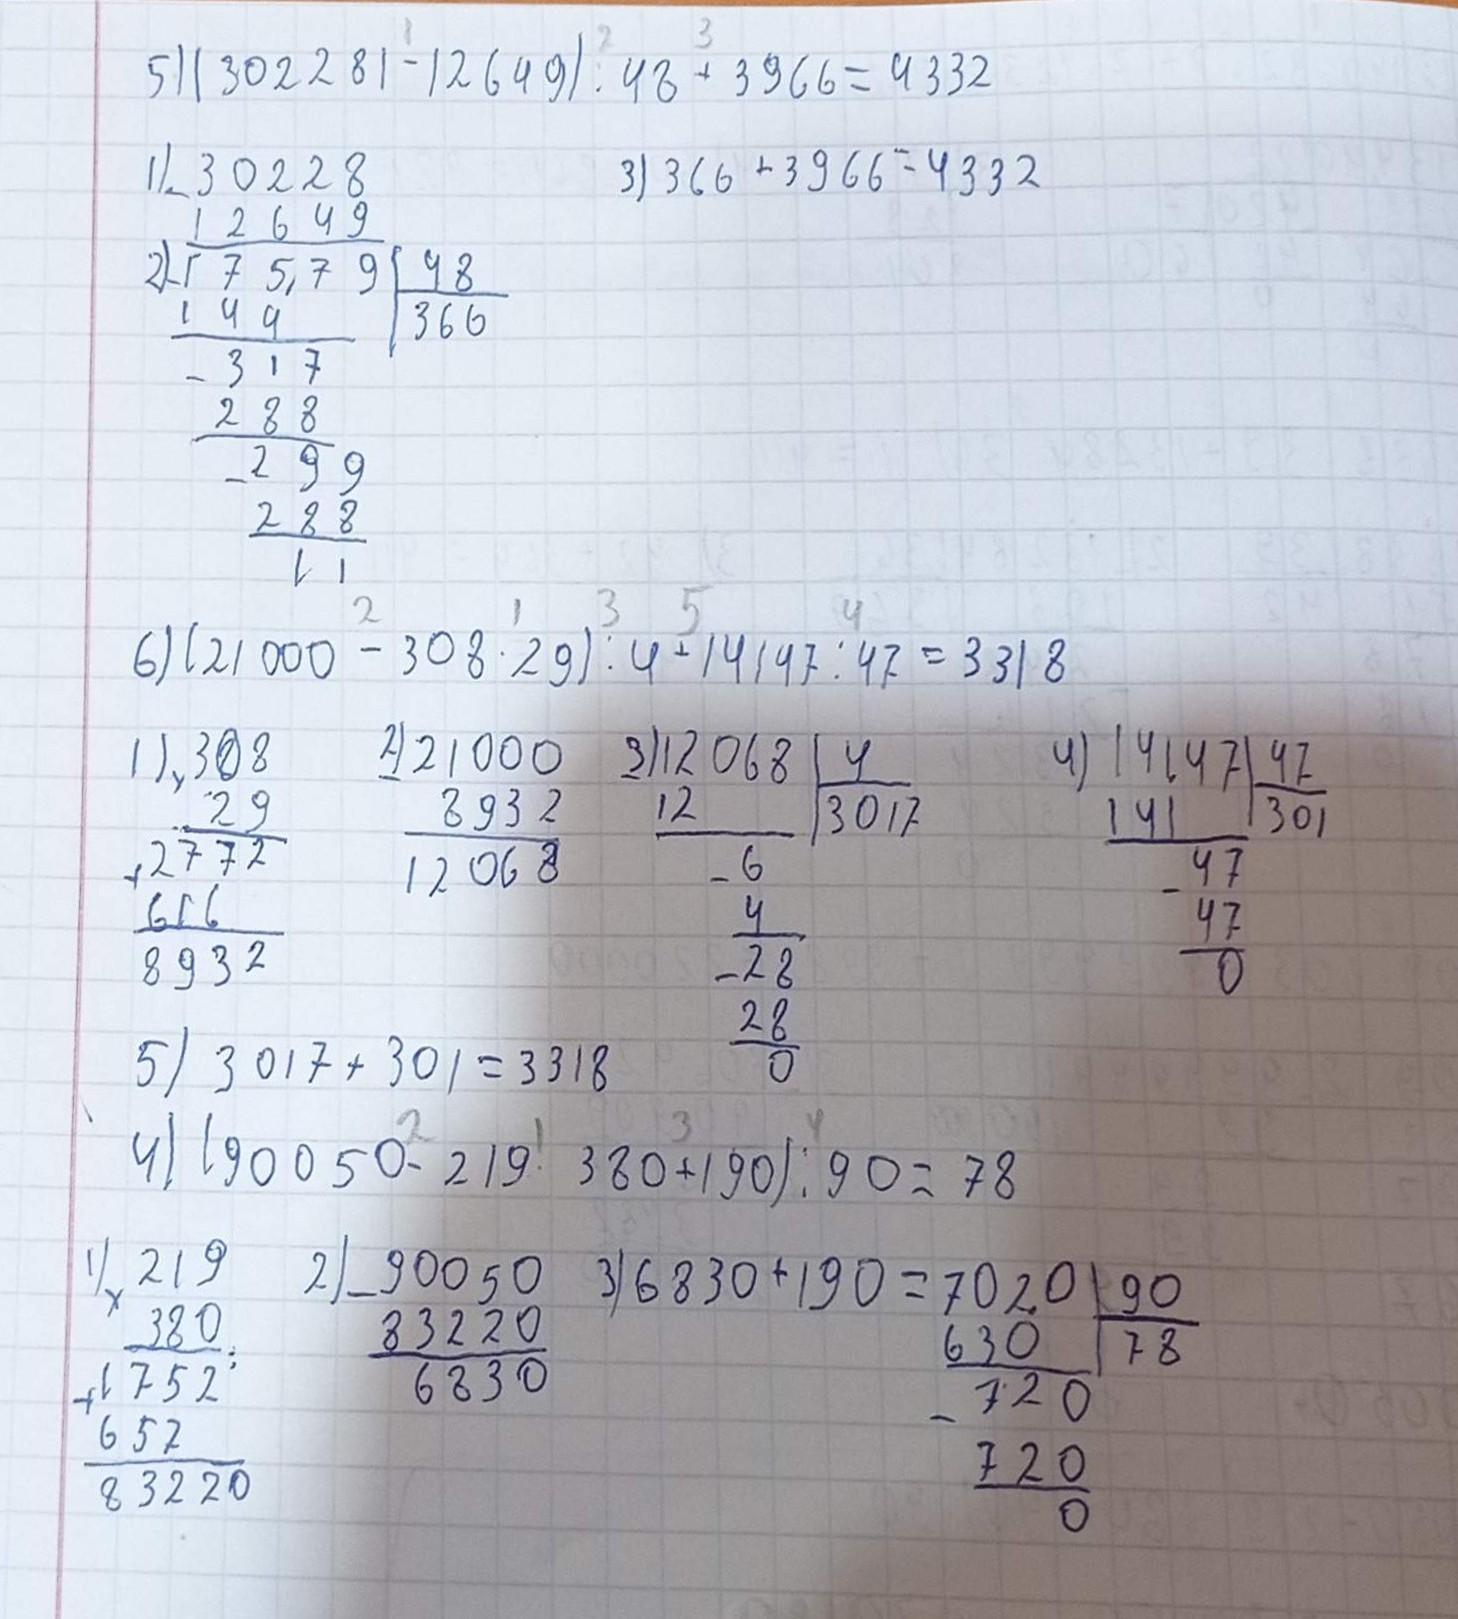 1 2 3
5) (302281 - 12649) : 48 + 3966 = 4332
1) - 30228 3) 366 + 3966 = 4332
12649
2) - 17579 | 48
144 | 366
- 317
288
- 299
288
11
2 1 3 5 4
6) (21000 - 308 · 29) : 4 + 14147 : 47 = 3318
1) x 308 2) - 21000 3) - 12068 | 4 4) 14147 | 47
29 8932 12 | 3017 141 | 301
+ 2772 12068 - 6 - 47
616 4 47
8932 - 28 0
28
5) 3017 + 301 = 3318 0
2 1 3 4
4) (90050 - 219 · 380 + 190) : 90 = 78
1) x 219 2) - 90050 3) 6830 + 190 = 7020 | 90
380 83220 630 | 78
+ 1752 6830 - 720
657 720
83220 0